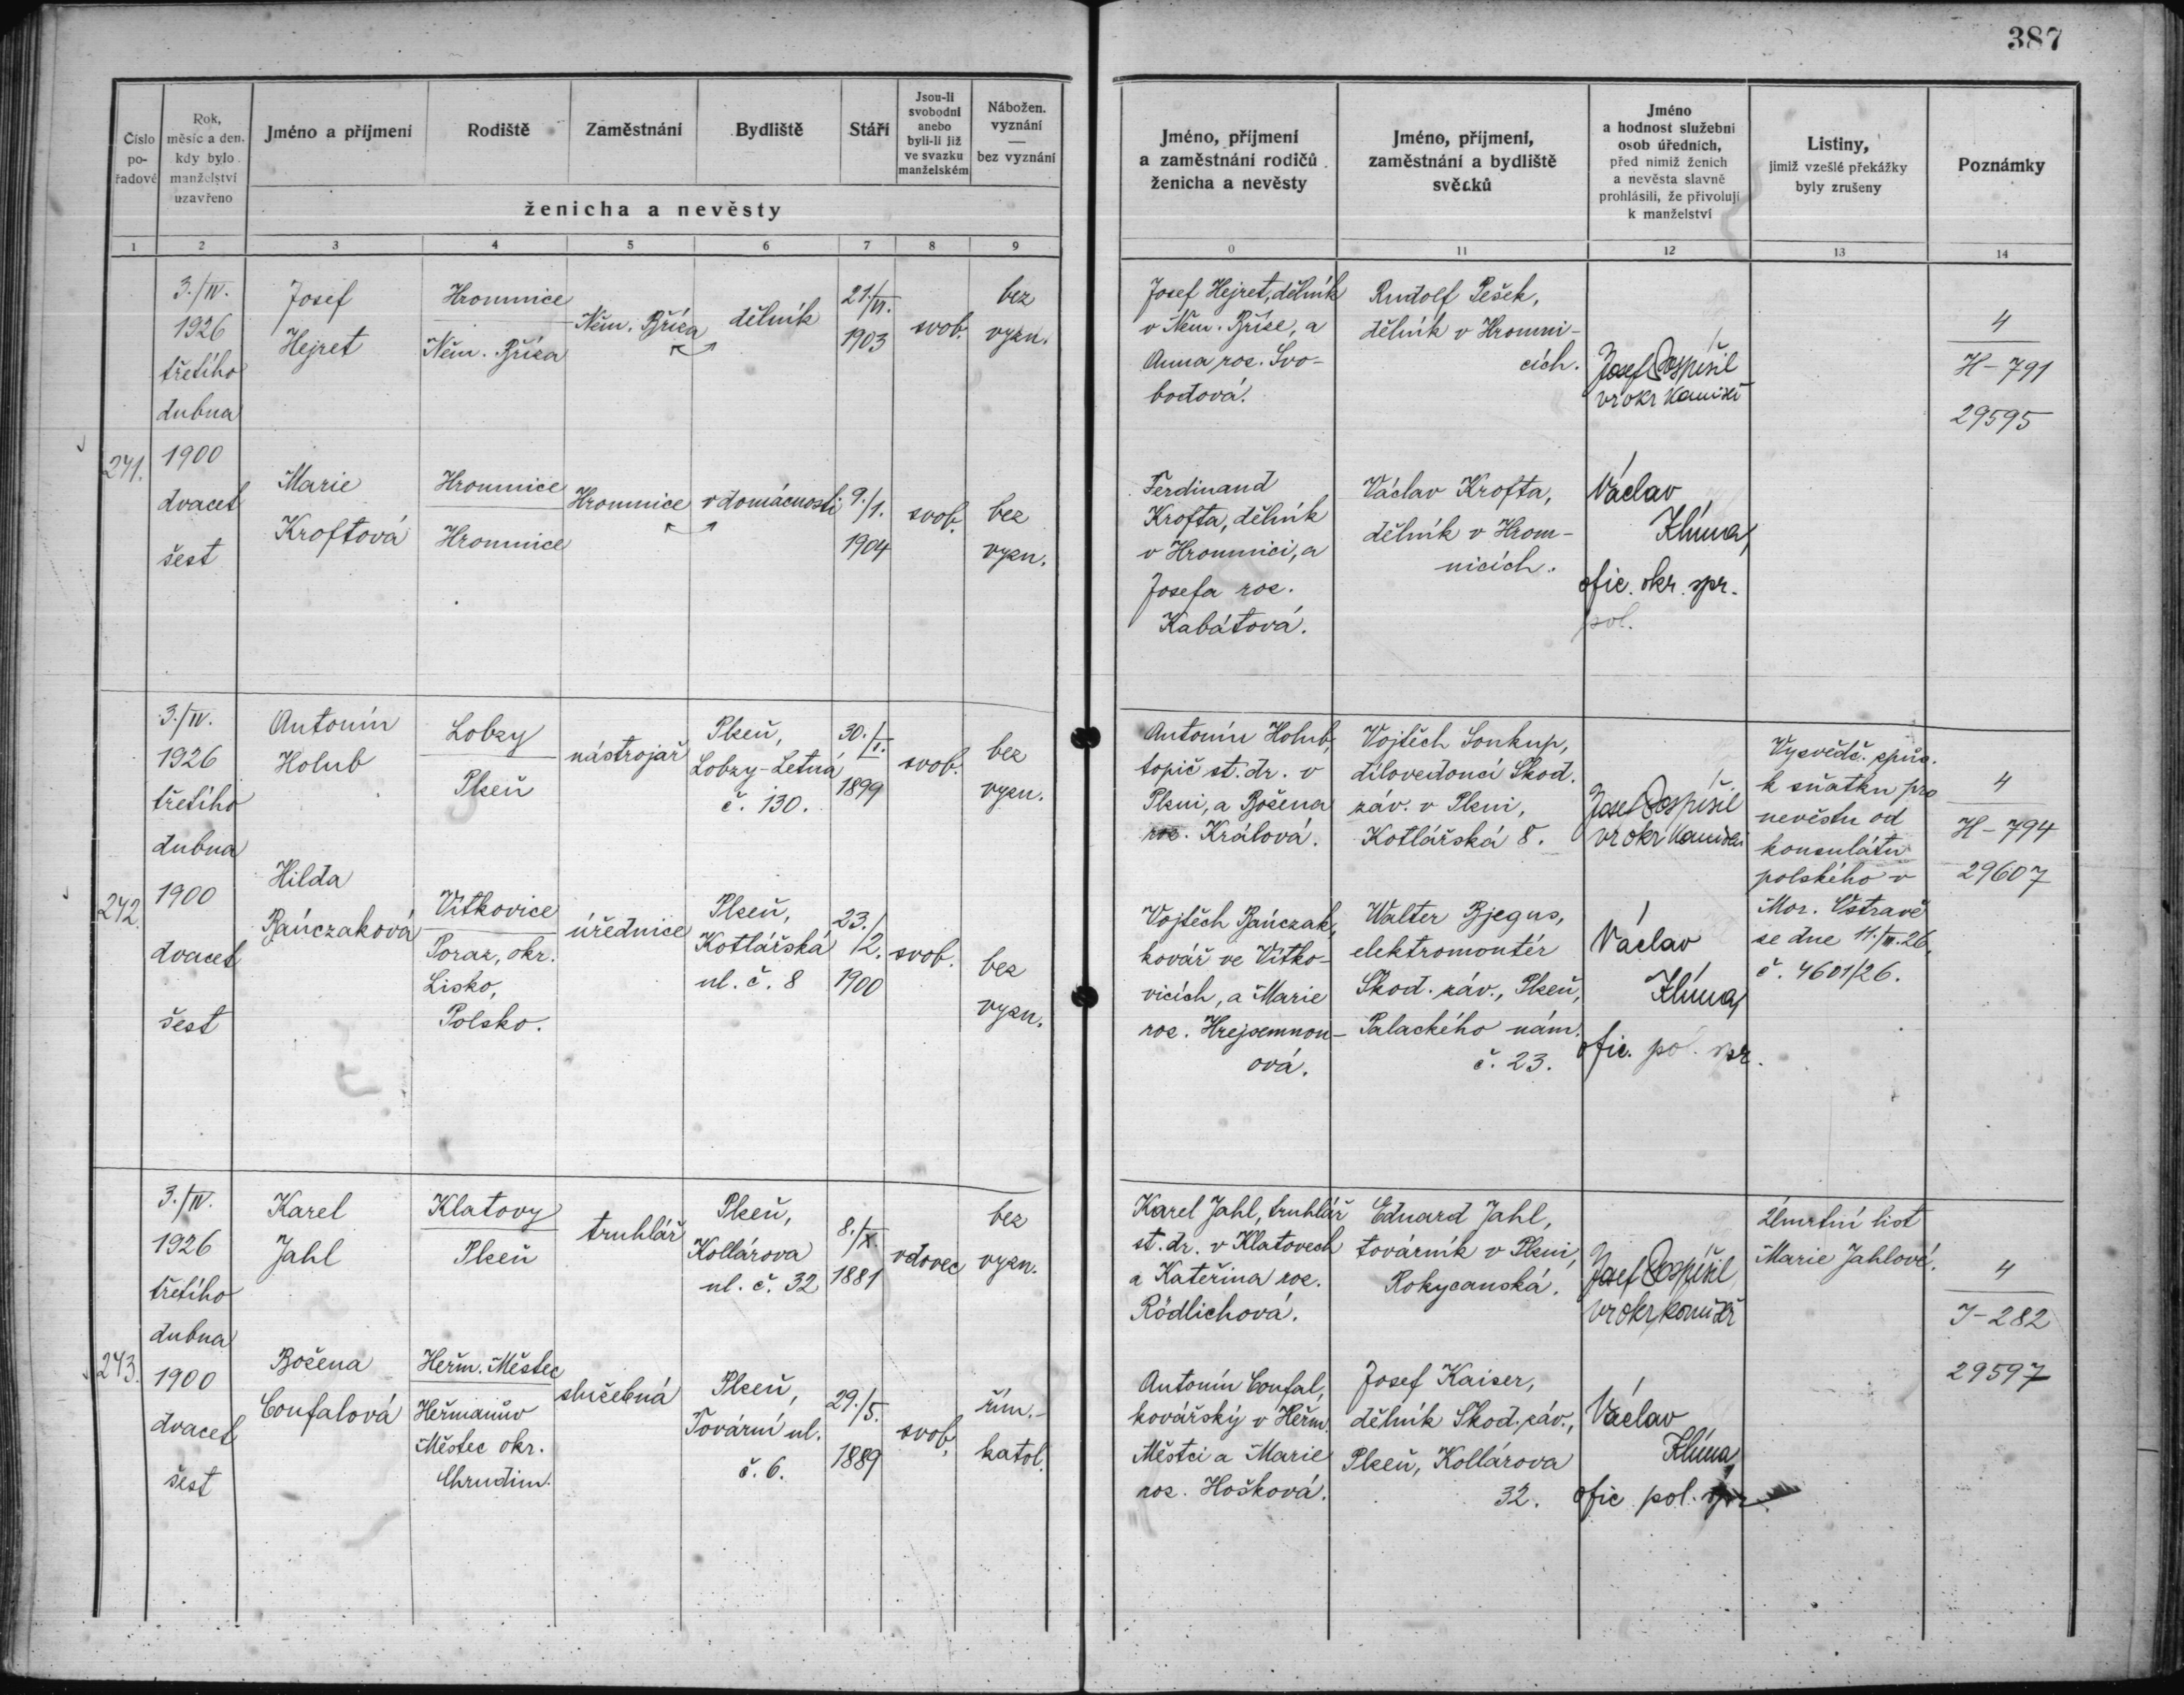 387
Číslo po-řadové
Rok, měsíc a den, kdy bylo manželství uzavřeno
Jméno a příjmení
Rodiště
Zaměstnání
Bydliště
Stáří
Jsou-li svobodni anebo byli-li již ve svazku manželském
Nábožen. vyznání — bez vyznání
ženicha a nevěsty
Jméno, příjmení a zaměstnání rodičů ženicha a nevěsty
Jméno, příjmení, zaměstnání a bydliště svědků
Jméno a hodnost služební osob úředních, před nimiž ženich a nevěsta slavně prohlásili, že přivolují k manželství
Listiny, jimiž vzešlé překážky byly zrušeny
Poznámky
1 2 3 4 5 6 7 8 9
0 11 12 13 14
241.
3./IV.
1926
třetího
dubna
1900
dvacet
šest
Josef
Hejret
Hromnice
Něm. Bříza
Něm. Bříza
dělník
21./VI.
1903
svob.
bez
vyzn.
Josef Hejret, dělník
v Něm. Bříze, a
Anna roz. Svo-
bodová.
Rudolf Pešek,
dělník v Hromni-
cích.
Josef Pospíšil
vr okr komisař
4
H-791
29595
Marie
Kroftová
Hromnice
Hromnice
Hromnice
v domácnosti
9./1.
1904
svob.
bez
vyzn.
Ferdinand
Krofta, dělník
v Hromnici, a
Josefa roz.
Kabátová.
Václav Krofta,
dělník v Hrom-
nicích.
Václav
Klíma,
ofic. okr. spr.
pol.
242.
3./IV.
1926
třetího
dubna
1900
dvacet
šest
Antonín
Holub
Lobzy
Plzeň
nástrojař
Plzeň,
Lobzy-Letná
č. 130.
30./I.
1899
svob.
bez
vyzn.
Antonín Holub,
topič st. dr. v
Plzni, a Božena
roz. Králová.
Vojtěch Soukup,
dílovedoucí Škod.
záv. v Plzni,
Kotlářská 8.
Josef Pospíšil
vr okr komisař
Vysvědč. způs.
k sňatku pro
nevěstu od
konsulátu
polského v
Mor. Ostravě
ze dne 11./III.26,
č. 4601/26.
4
H-794
29607
Hilda
Bańczaková
Vítkovice
Poraz, okr.
Lisko,
Polsko.
úřednice
Plzeň,
Kotlářská
ul. č. 8
23./2.
1900
svob.
bez
vyzn.
Vojtěch Bańczak,
kovář ve Vítko-
vicích, a Marie
roz. Hrejzemnou-
ová.
Walter Bjegus,
elektromontér
Škod. záv., Plzeň,
Palackého nám.
č. 23.
Václav
Klíma,
ofic. pol. spr.
243.
3./IV.
1926
třetího
dubna
1900
dvacet
šest
Karel
Jahl
Klatovy
Plzeň
truhlář
Plzeň,
Kollárova
ul. č. 32
8./X.
1881
vdovec
bez
vyzn.
Karel Jahl, truhlář
st. dr. v Klatovech
a Kateřina roz.
Rödlichová.
Eduard Jahl,
továrník v Plzni,
Rokycanská.
Josef Pospíšil
vr okr komisař
Úmrtní list
Marie Jahlové.
4
J-282
29597
Božena
Coufalová
Heřm. Městec
Heřmanův
Městec okr.
Chrudim.
služebná
Plzeň,
Tovární ul.
č. 6.
29./5.
1889
svob.
řím.-
katol.
Antonín Coufal,
kovářský v Heřm.
Městci a Marie
roz. Hošková.
Josef Kaiser,
dělník Škod. záv.,
Plzeň, Kollárova
32.
Václav
Klíma,
ofic pol. spr.